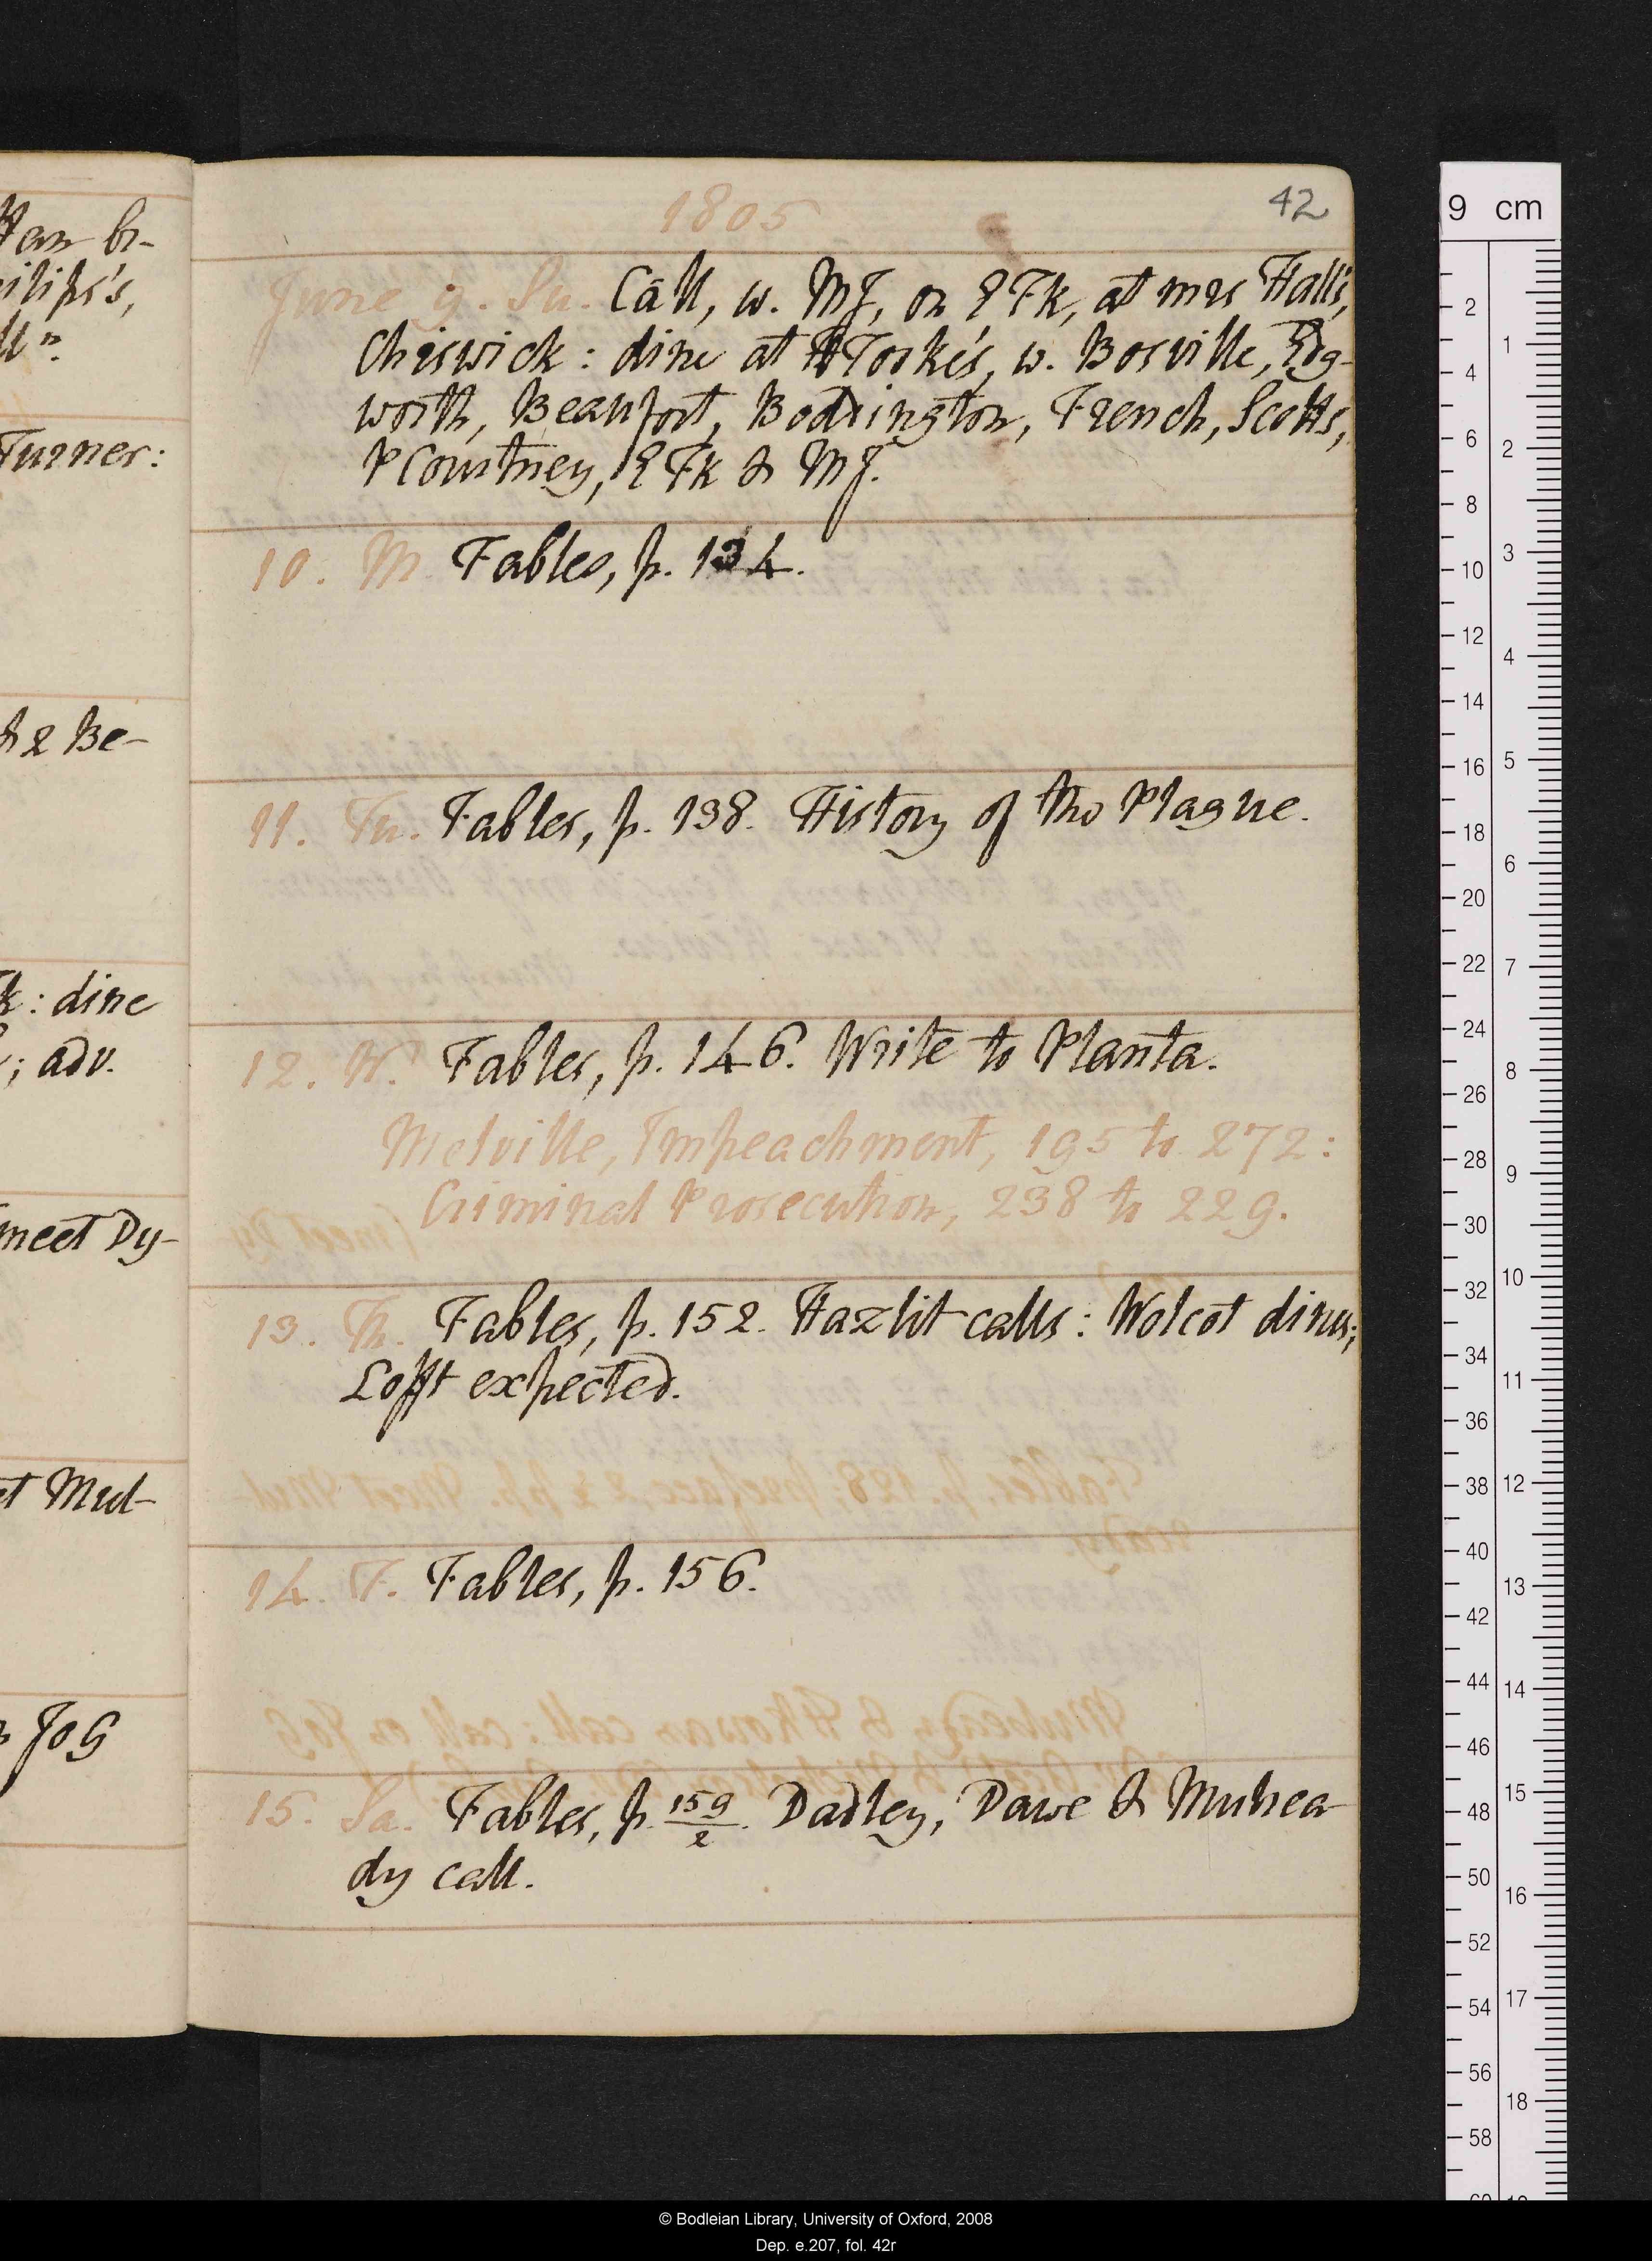 Han br-
ilips's,
Turner:
& Be-
k: dine
; adv.
meet Dy-
t Mul-
JoG
1805
42
June 9. Su. Call, w. MJ, on EFk, at mrs Hall's,
Chiswick: dine at HTooke's, w. Bosville, Edg-
worth, Beaufort, Boddington, French, Scotts,
PCourtney, EFk & MJ.
10. M. Fables, p. 134.
11. Tu. Fables, p. 138. History of the Plague.
12. W. Fables, p. 146. Write to Planta.
Melville, Impeachment, 195 to 272:
Criminal Prosecution, 238 to 229.
13. Th. Fables, p. 152. Hazlit calls: Wolcot dines;
Lofft expected.
14. F. Fables, p. 156.
15. Sa. Fables, p. 159/2. Dadley, Dawe & Mulrea-
dy call.
9 cm
2 4 6 8 10 12 14 16 18 20 22 24 26 28 30 32 34 36 38 40 42 44 46 48 50 52 54 56 58
1 2 3 4 5 6 7 8 9 10 11 12 13 14 15 16 17 18
© Bodleian Library, University of Oxford, 2008
Dep. e.207, fol. 42r